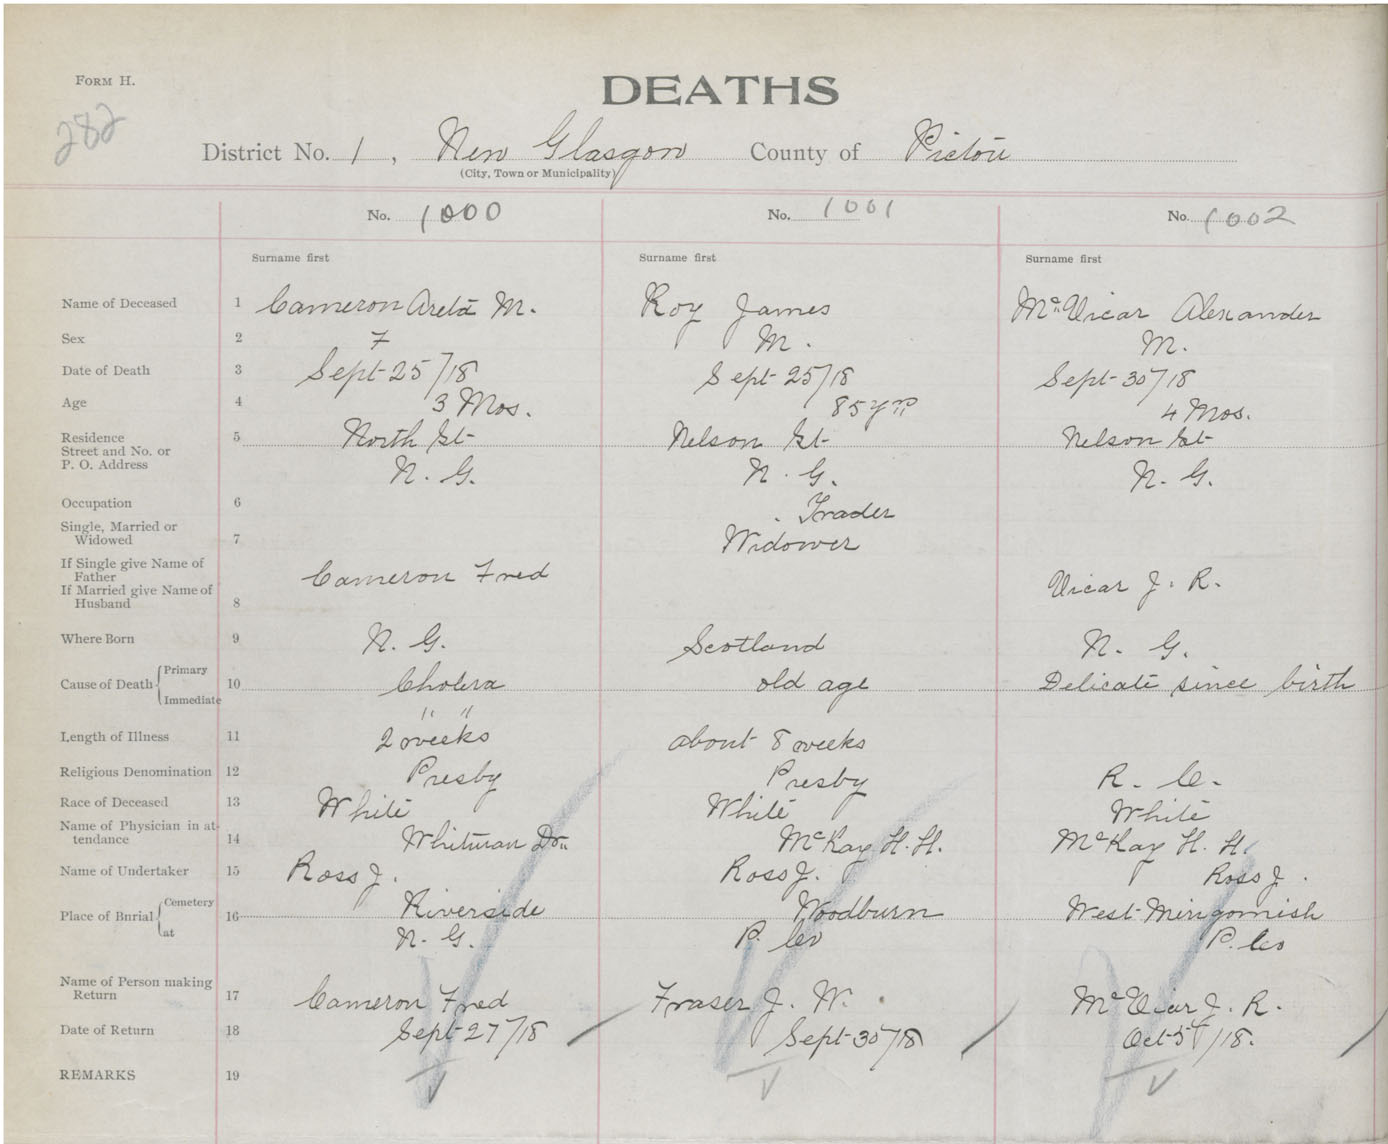 FORM H.
DEATHS
282
District No. 1, New Glasgow County of Pictou
(City, Town or Municipality)
No. 1000 No. 1001 No. 1002
Surname first Surname first Surname first
Name of Deceased 1 Cameron Areta M. Roy James McVicar Alexander
Sex 2 F M. M.
Date of Death 3 Sept 25/18 Sept 25/18 Sept 30/18
Age 4 3 Mos. 85 yrs 4 Mos.
Residence 5 North St Nelson St Nelson St
Street and No. or
P. O. Address N. G. N. G. N. G.
Occupation 6 Trader
Single, Married or
Widowed 7 Widower
If Single give Name of
Father Cameron Fred Vicar J. R.
If Married give Name of
Husband 8
Where Born 9 N. G. Scotland N. G.
Cause of Death { Primary
10 Cholera old age Delicate since birth
Immediate " "
Length of Illness 11 2 weeks about 8 weeks
Religious Denomination 12 Presby Presby R. C.
Race of Deceased 13 White White White
Name of Physician in at-
tendance 14 Whitman Dr. McKay H. H. McKay H. H.
Name of Undertaker 15 Ross J. Ross J. Ross J.
Place of Burial { Cemetery 16 Riverside Woodburn West Merigomish
at N. G. P. Co P. Co
Name of Person making
Return 17 Cameron Fred Fraser J. W. McVicar J. R.
Date of Return 18 Sept 27/18 Sept 30/18 Oct 5/18.
REMARKS 19